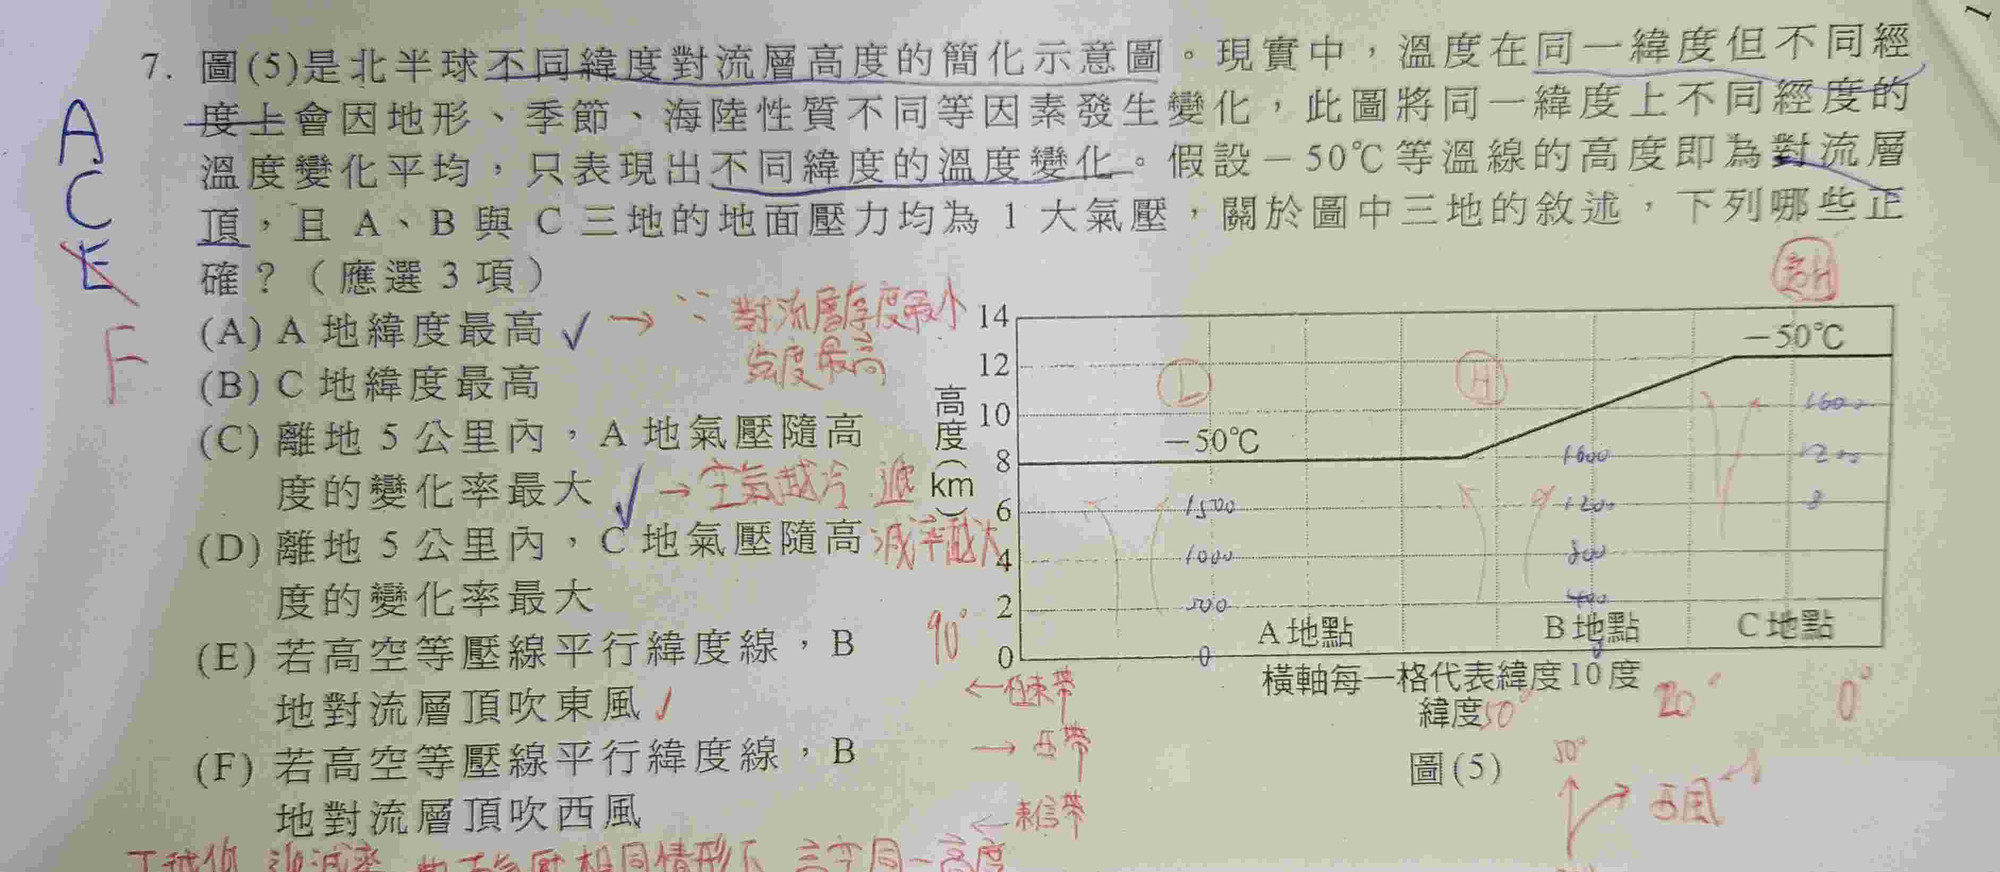 7. 圖(5)是北半球不同緯度對流層高度的簡化示意圖。現實中，溫度在同一緯度但不同經
度上會因地形、季節、海陸性質不同等因素發生變化，此圖將同一緯度上不同經度的
溫度變化平均，只表現出不同緯度的溫度變化。假設－50℃等溫線的高度即為對流層
頂，且 A、B 與 C 三地的地面壓力均為 1 大氣壓，關於圖中三地的敘述，下列哪些正
確？（應選 3 項）
A
C
E
F
(A) A 地緯度最高 ✓ → ∵ 對流層厚度最小
緯度最高
(B) C 地緯度最高
(C) 離地 5 公里內，A 地氣壓隨高
度的變化率最大 ✓ → 空氣越冷 遞
減率越大
(D) 離地 5 公里內，C 地氣壓隨高
度的變化率最大
(E) 若高空等壓線平行緯度線，B
地對流層頂吹東風
(F) 若高空等壓線平行緯度線，B
地對流層頂吹西風
高度(km)
14
12
10
8
6
4
2
0
L
H
－50℃
－50℃
1500
1000
500
0
1600
1200
800
400
0
1600
1200
8
A 地點
B 地點
C 地點
橫軸每一格代表緯度 10 度
緯度
90°
50°
20°
0°
圖(5)
← 極東帶
→ 西帶
← 東信帶
50°
西風